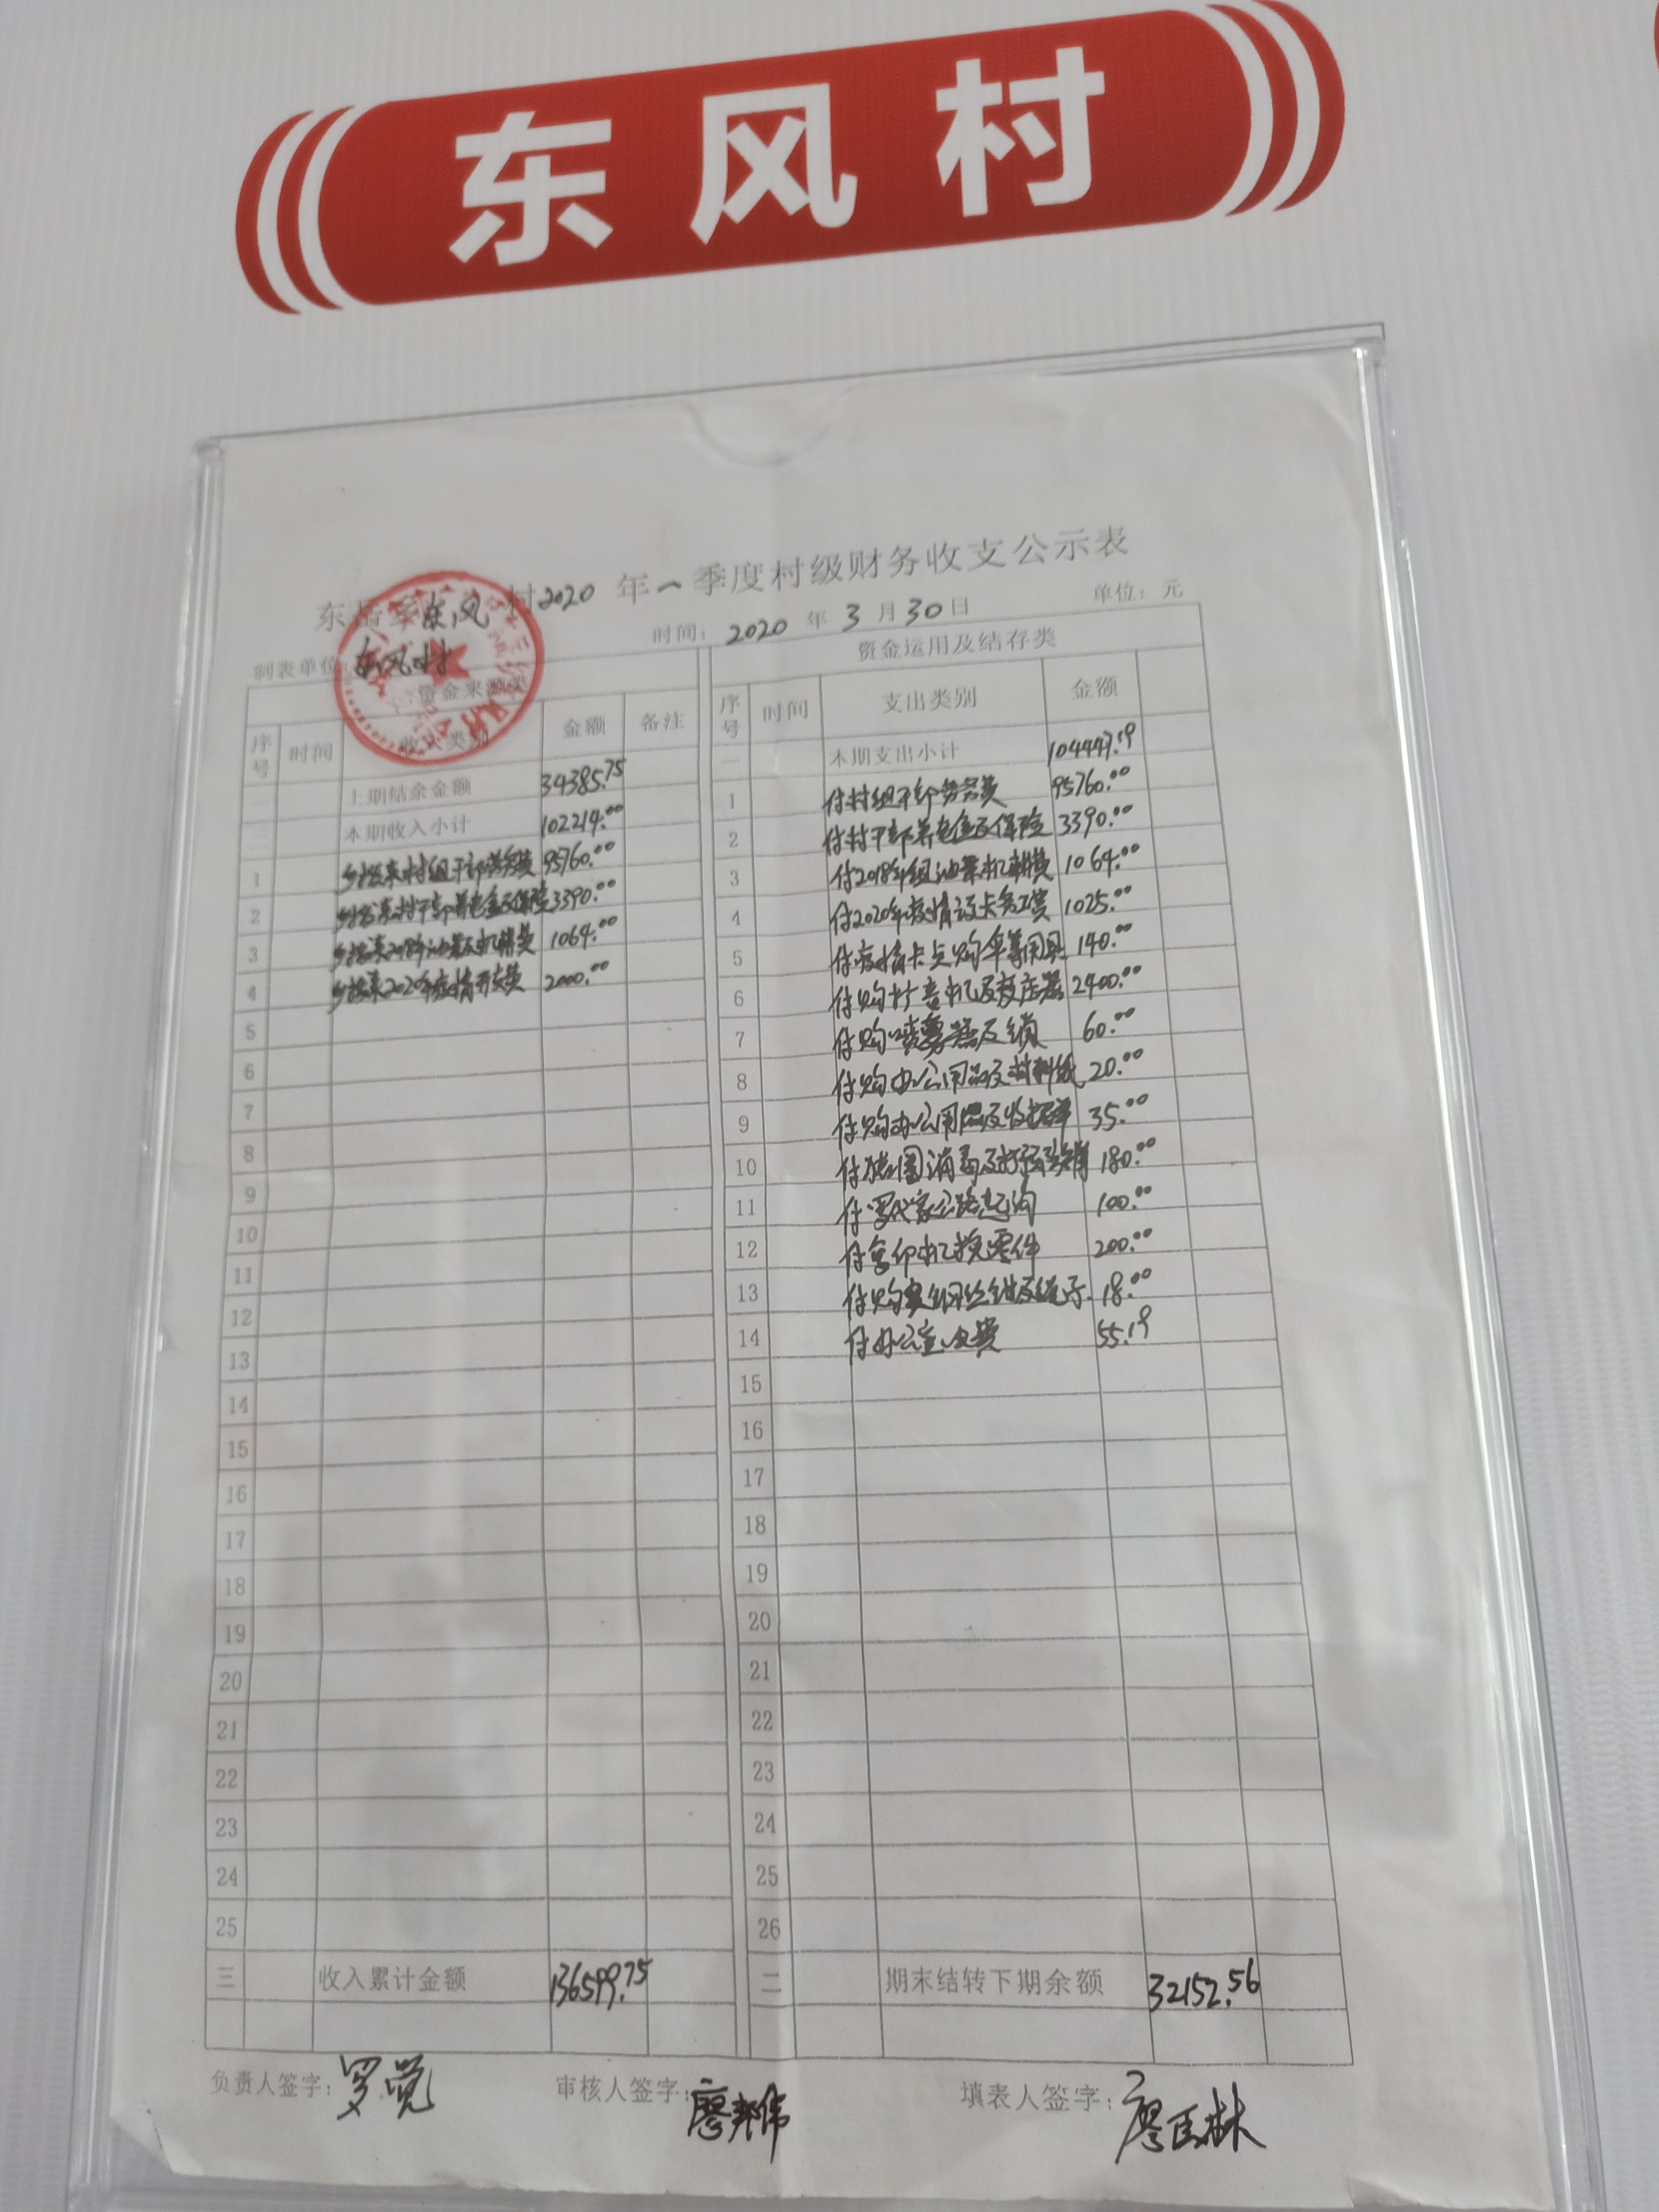 东风村
东岳乡东风村2020年一季度村级财务收支公示表
时间：2020年3月30日
单位：元
制表单位：东风村
资金来源类
序号 时间 收入类别 金额 备注
一 上期结余金额 34385.75
二 本期收入小计 102214.00
1 乡拨来村组干部劳务费 95760.00
2 乡拨来村干部养老金及保险 3390.00
3 乡拨来2018年油菜机耕费 1064.00
4 乡拨来2020年疫情开支费 2000.00
5
6
7
8
9
10
11
12
13
14
15
16
17
18
19
20
21
22
23
24
25
三 收入累计金额 136599.75
资金运用及结存类
序号 时间 支出类别 金额
一 本期支出小计 104447.19
1 付村组干部劳务费 95760.00
2 付村干部养老金及保险 3390.00
3 付2018年组油菜机耕费 1064.00
4 付2020年疫情设卡务工费 1025.00
5 付疫情卡点购伞等用具 140.00
6 付购扩音机及 2400.00
7 付购喷雾器及锁 60.00
8 付购办公用品及材料纸 20.00
9 付购办公用品及收据单 35.00
10 付猪圈消毒及打 180.00
11 付 家公路 沟 100.00
12 付复印机换零件 200.00
13 付购买钢丝钳及绳子 18.00
14 付办公室电费 55.19
15
16
17
18
19
20
21
22
23
24
25
26
二 期末结转下期余额 32152.56
负责人签字：罗觉
审核人签字：廖邦伟
填表人签字：廖 林